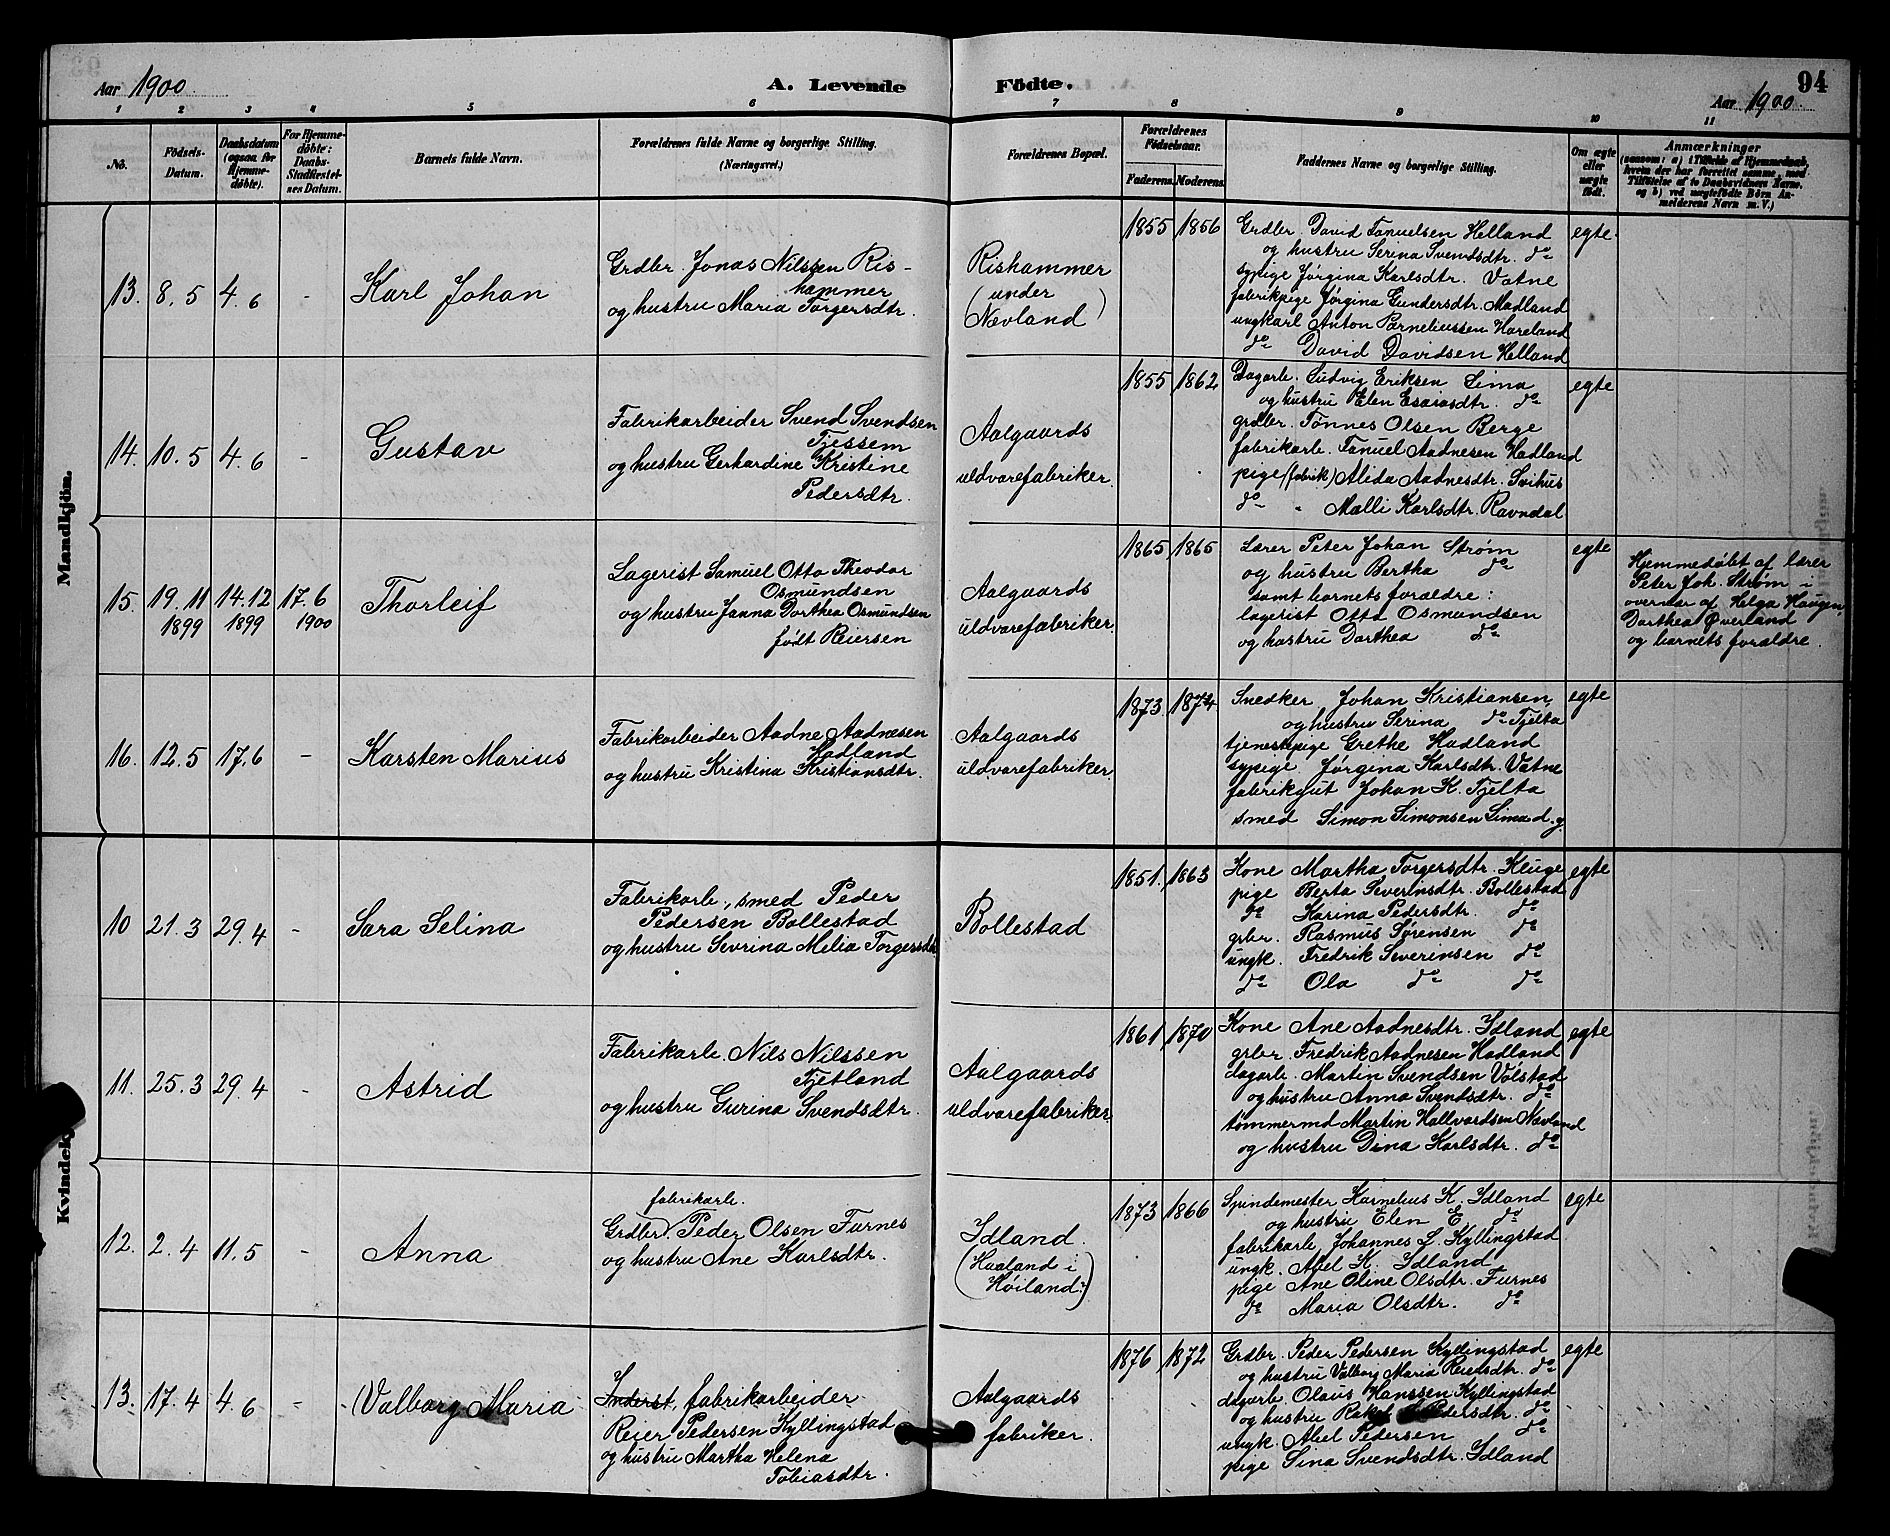 Aar 1900
A. Levende
Födte.
94
Aar 1900.
1 2 3 4 5 6 7 8 9 10 11
No.
Födsels-
Datum.
Daabsdatum
(ogsaa for
Hjemme-
döbte).
For Hjemme-
döbte:
Daabs-
Stadfæstel-
ses Datum.
Barnets fulde Navn.
Forældrenes fulde Navne og borgerlige Stilling.
(Næringsvei.)
Forældrenes Bopæl.
Forældrenes
Födselsaar.
Faderens. Moderens.
Faddernes Navne og borgerlige Stilling.
Om ægte
eller
uægte
född.
Anmærkninger
(saasom: a) i Tilfælde af Hjemmedaab,
hvem der har forrettet samme, med
Tilföielse af to Daabsvidners Navne,
og b) ved uægtefödte Börn An-
melderens Navn m. V.)
Mandkjön.
13. 8.5 4.6 - Karl Johan
Grdbr. Jonas Nilssen Ris-
hammer
og hustru Maria Torgersdtr.
Rishammer
(under
Nævland)
1855 1856
Grdbr. David Tanuelsen Helland
og hustru Serina Svendsdtr. do
sypige Jørgina Karlsdtr. Vatne
fabrikpige Jørgina Gundersdtr. Madland
ungkarl Anton Porneliussen Hareland
do David Davidsen Helland
egte
14. 10.5 4.6 - Gustav
Fabrikarbeider Svend Svendsen
Tjessem
og hustru Gerhardine Kristine
Pedersdtr.
Aalgaards
uldvarefabriker.
1855 1862
Dagarb. Ludvig Eriksen Lima
og hustru Elen Esaiasdtr. do
grdbr. Tønnes Olsen Berge
fabrikarb. Tanuel Aadnesen Hadland
pige (fabrik) Alida Aadnesdtr. Svihus
do " Malli Karlsdtr. Ravndal
egte
15. 19.11 14.12 17.6
1899 1899 1900
Thorleif
Lagerist Samuel Otto Theodor
Osmundsen
og hustru Janna Dorthea Osmundsen
født Reiersen
Aalgaards
uldvarefabriker.
1865 1865
Lærer Peter Johan Strøm
og hustru Bertha do
samt barnets forældre:
lagerist Otto Osmundsen
og hustru Dorthea do
egte
Hjemmedøbt af lærer
Peter Joh. Strøm i
overvær af Helga Haugen,
Dorthea Øverland
og barnets forældre.
16. 12.5 17.6 - Karsten Marius
Fabrikarbeider Aadne Aadnesen
Hadland
og hustru Kristina Kristiansdtr.
Aalgaards
uldvarefabriker.
1873 1874
Snedker Johan Kristiansen,
og hustru Serina do Tjelta
tjenestepige Grethe Hadland
sypige Jørgina Karlsdtr. Vatne
fabrikgut Johan K. Tjelta
smed Simon Simonsen Lima d.y.
egte
Kvindekj
10 21.3 29.4 - Sara Selina
Fabrikarb., smed Peder
Pedersen Bollestad
og hustru Sevrina Melia Torgersdtr
Bollestad
1851. 1863
Kone Martha Torgersdtr. Kluge
pige Berta Severinsdtr. Bollestad
do Karina Pedersdtr. do
grbr. Rasmus Sørensen do
ungk. Fredrik Severinsen do
do Ola do do
egte
11. 25.3 29.4 - Astrid
Fabrikarb. Nils Nilssen
Tjetland
og hustru Gurina Svendsdtr.
Aalgaards
uldvarefabriker.
1861 1870
Kone Ane Aadnesdtr. Idland
grbr. Fredrik Aadnesen Hadland
dagarb. Martin Svendsen Valstad
og hustru Anna Svendsdtr. do
tømmermd Martin Hallvardsen Nævland
og hustru Dina Karlsdtr. do
egte
12. 2.4 11.5 - Anna
fabrikarb.
Grdbr. Peder Olsen Furnes
og hustru Ane Karlsdtr.
Idland.
(Haaland i
Høiland.)
1873 1866
Spindemester Karnelius K. Idland
og hustru Elen E do
fabrikarb. Johannes L. Kyllingstad
ungk. Abel K. Idland
pige Ane Oline Olsdtr. Furnes
do Maria Olsdtr. do
egte
13. 17.4 4.6 - Valborg Maria
Inderst, fabrikarbeider
Reier Pedersen Kyllingstad
og hustru Martha Helena
Tobiasdtr.
Aalgaards
fabriker.
1876 1872
Grdbr. Peder Pedersen Kyllingstad
og hustru Valborg Maria Reiersdtr. do
dagarb. Olaus Hanssen Kyllingstad
og hustru Rakel Pedersdtr. do
ungk. Abel Pedersen do
pige Sina Svendsdtr. Idland
egte